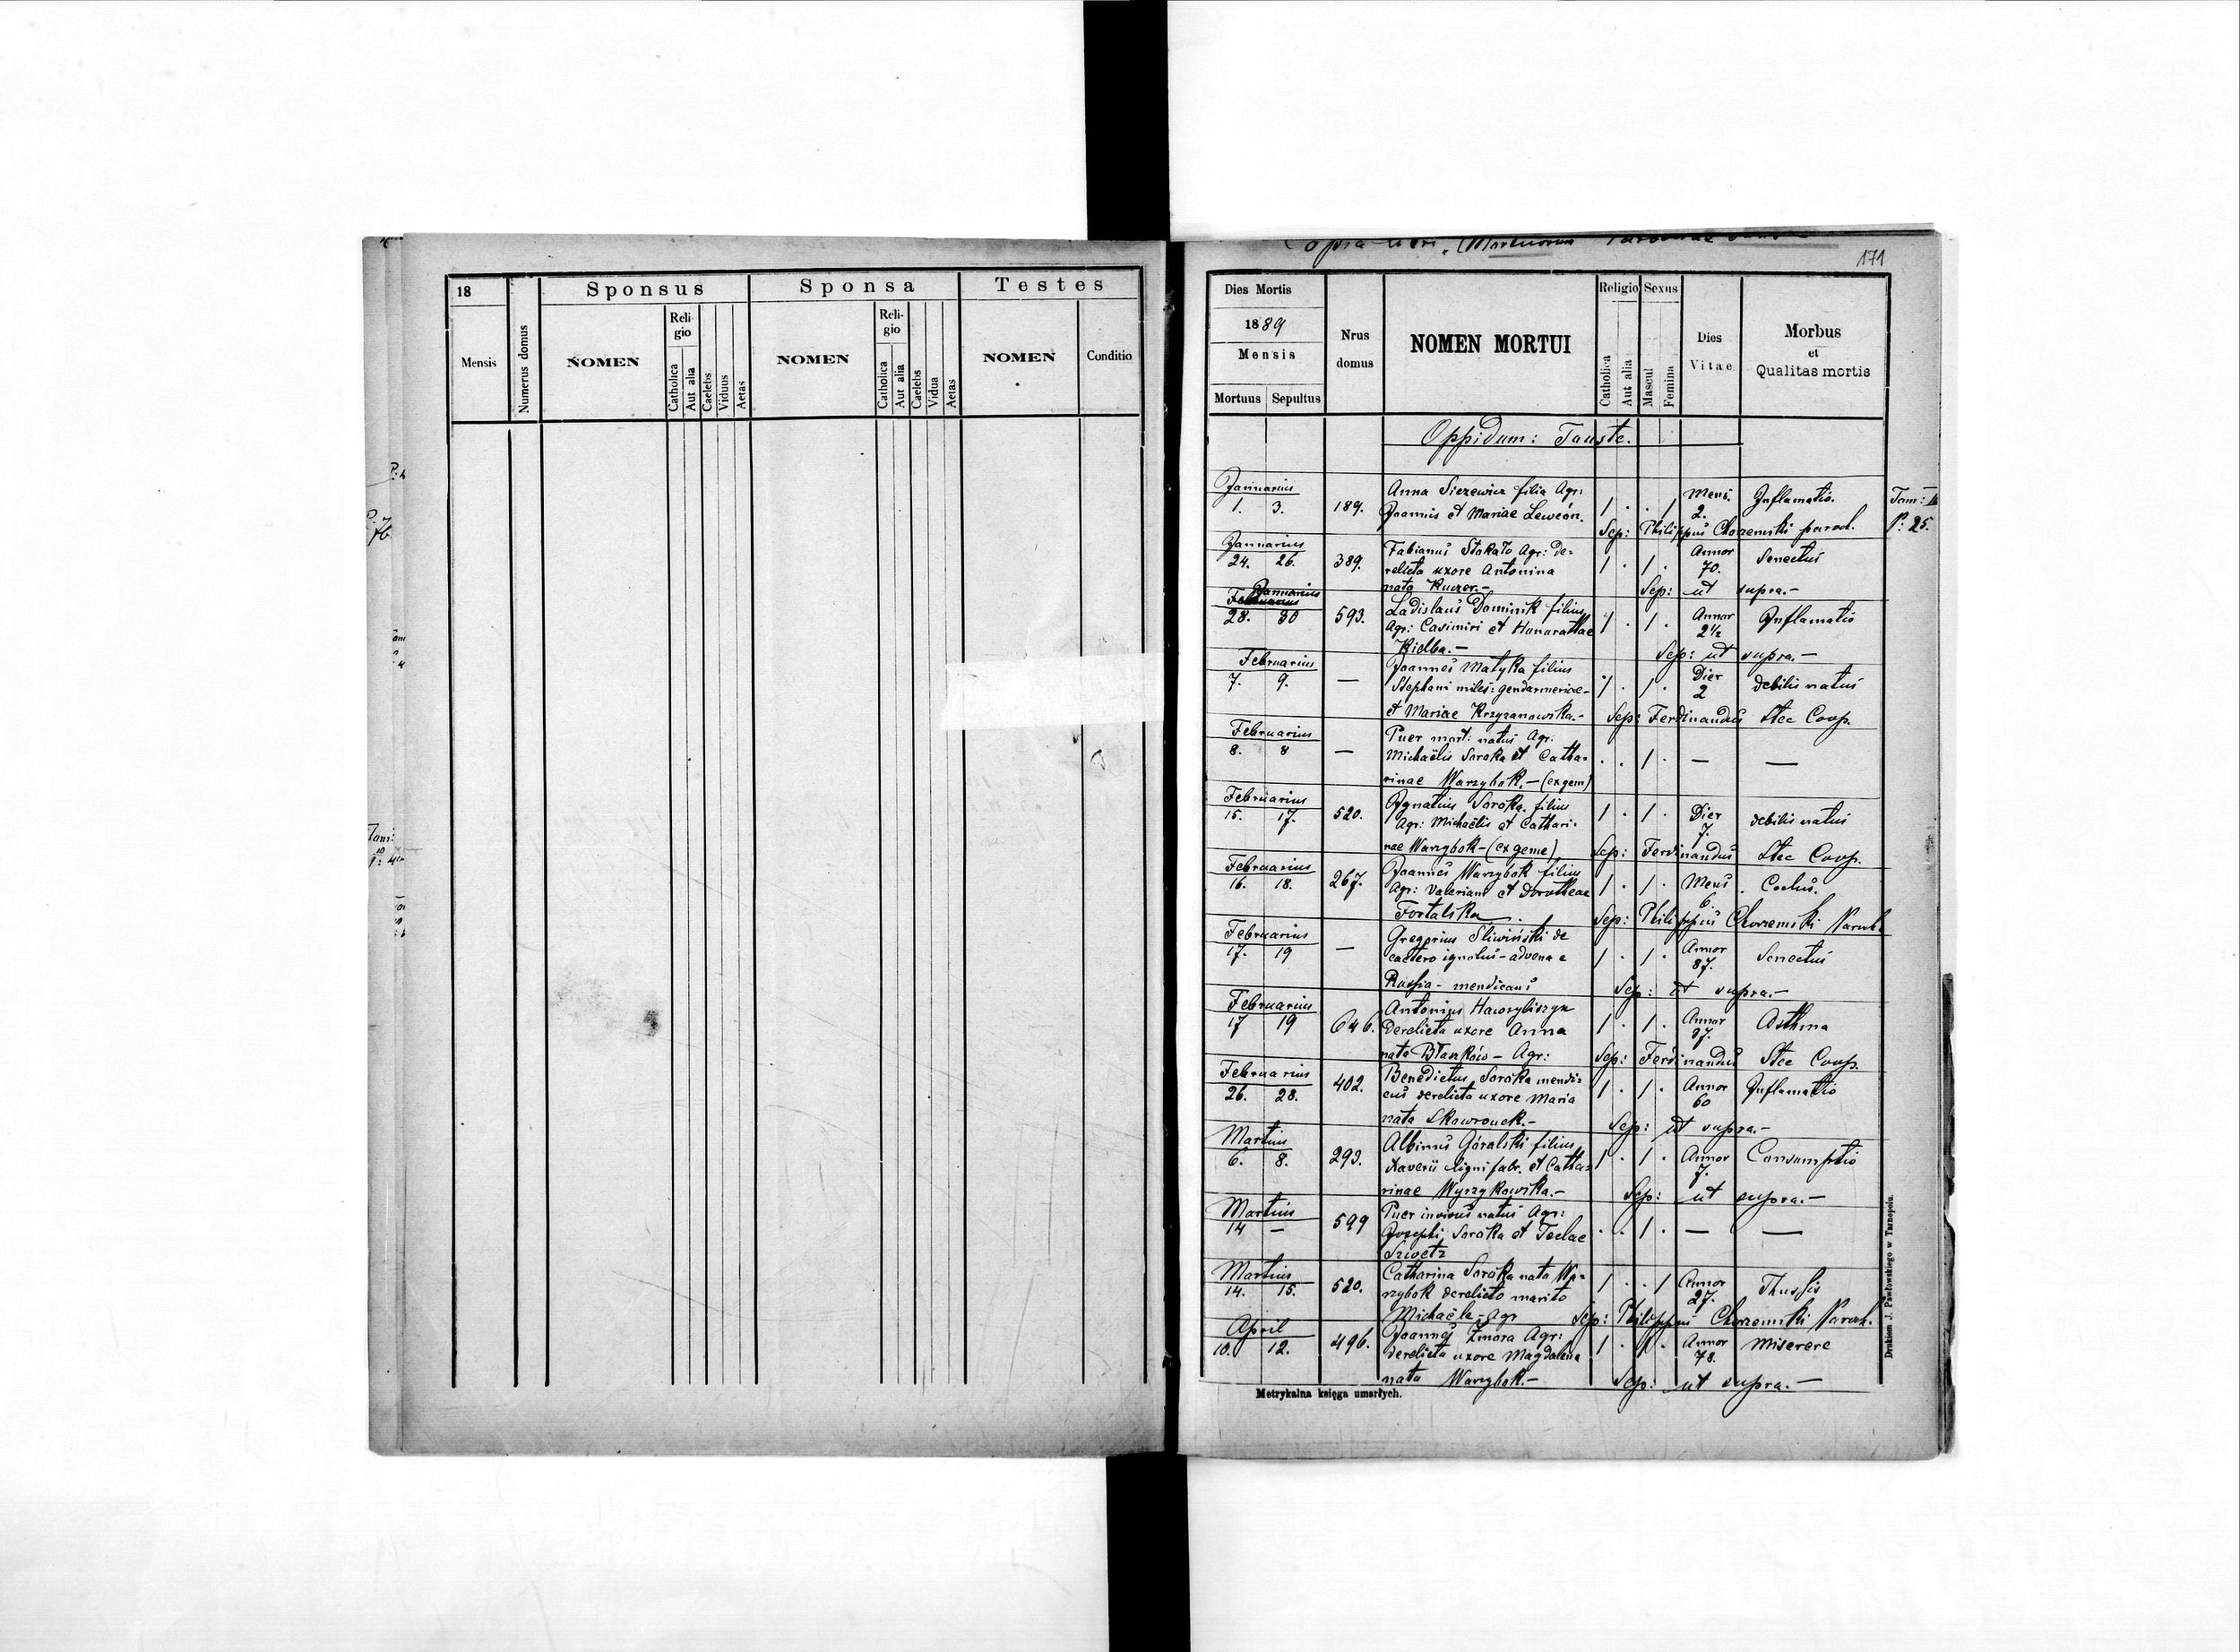 18
Mensis
Numerus domus
Sponsus
NOMEN
Reli-
gio
Catholica
Aut alia
Caelebs
Viduus
Aetas
Sponsa
NOMEN
Reli-
gio
Catholica
Aut alia
Caelebs
Vidua
Aetas
Testes
NOMEN
Conditio
171
Dies Mortis
1889
Mensis
Mortuus Sepultus
Nrus
domus
NOMEN MORTUI
Religio
Catholica
Aut alia
Sexus
Mascul
Femina
Dies
Vitae
Morbus
et
Qualitas mortis
Oppidum: Tauste.
Januarius
1. 3. 189.
Anna Siezewicz filia Agr:
Joannis et Mariae Lewcón.
1 . . 1 Mens. 2. Inflamatio.
Tom: P: 25.
Sep: Philippus Chorzemski paroch.
Januarius
24. 26. 389.
Fabianus Stokało Agr: de=
relicta uxore Antonina
nata Kuczer.-
1 . 1 . Annor 70. Senectus
Sep: ut supra.-
Januarius
28. 30 593.
Ladislaus Dominik filius
Agr: Casimiri et Honorathae
Kiełba.-
1 . 1 . Annor 2½ Inflamatio
Sep: ut supra.-
Februarius
7. 9. —
Joannes Matyka filius
Stephani miles: gendarmeriae-
et Mariae Krzyzanowska.-
1 . 1 . Dier 2 debilis natus
Sep: Ferdinandus Stec Coop.
Februarius
8. 8 —
Puer mort: natus Agr:
Michaëlis Soroka et Catha=
rinae Warzybok.-(ex gem)
. . 1 . — —
Februarius
15. 17. 520.
Ignatius Soroka filius
Agr: Michaëlis et Cathari-
nae Warzybok-(ex geme)
1 . 1 . Dier 7. debilis natus
Sep: Ferdinandus Stec Coop.
Februarius
16. 18. 267.
Joannes Warzybok filius
Agr: Valeriani et Dorotheae
Fortalska
1 . 1 . Mens 6.
Sep: Philippus Chorzemski Paroch.
Februarius
17. 19 —
Gregorius Sliwiński de
caetero ignotus-advena e
Russia-mendicans
1 . 1 . Annor 87. Senectus
Sep: ut supra.-
Februarius
17 19 646.
Antonius Hawryliszyn
derelicta uxore Anna
nata Błaszków- Agr:
1 . 1 . Annor 37. Asthma
Sep: Ferdinandus Stec Coop.
Februarius
26. 28. 402.
Benedictus Soroka mendi=
cus derelicta uxore Maria
nata Skowronek.-
1 . 1 . Annor 60 Inflamatio
Sep: ut supra.-
Martius
6. 8. 293.
Albinus Góralski filius
Xaverii lignifabr. et Catha=
rinae Wyrzykowska.-
1 . 1 . Annor 7. Consumptio
Sep: ut supra.-
Martius
14 — 599
Puer invivus natus Agr:
Josephi Soroka et Teclae
Szwetz
. . 1 . — —
Martius
14. 15. 520.
Catharina Soroka nata Wa=
rzybok derelicto marito
Michaële-Agr
1 . . 1 Annor 27. Thussis
Sep: Philippus Chorzemski Paroch.
April
10. 12. 496.
Joannes Żmora Agr:
derelicta uxore Magdalena
nata Warzybok.-
1 . 1 . Annor 78. Miserere
Sep: ut supra.-
Metrykalna księga umarłych.
Drukiem J. Pawłowskiego w Tarnopolu.